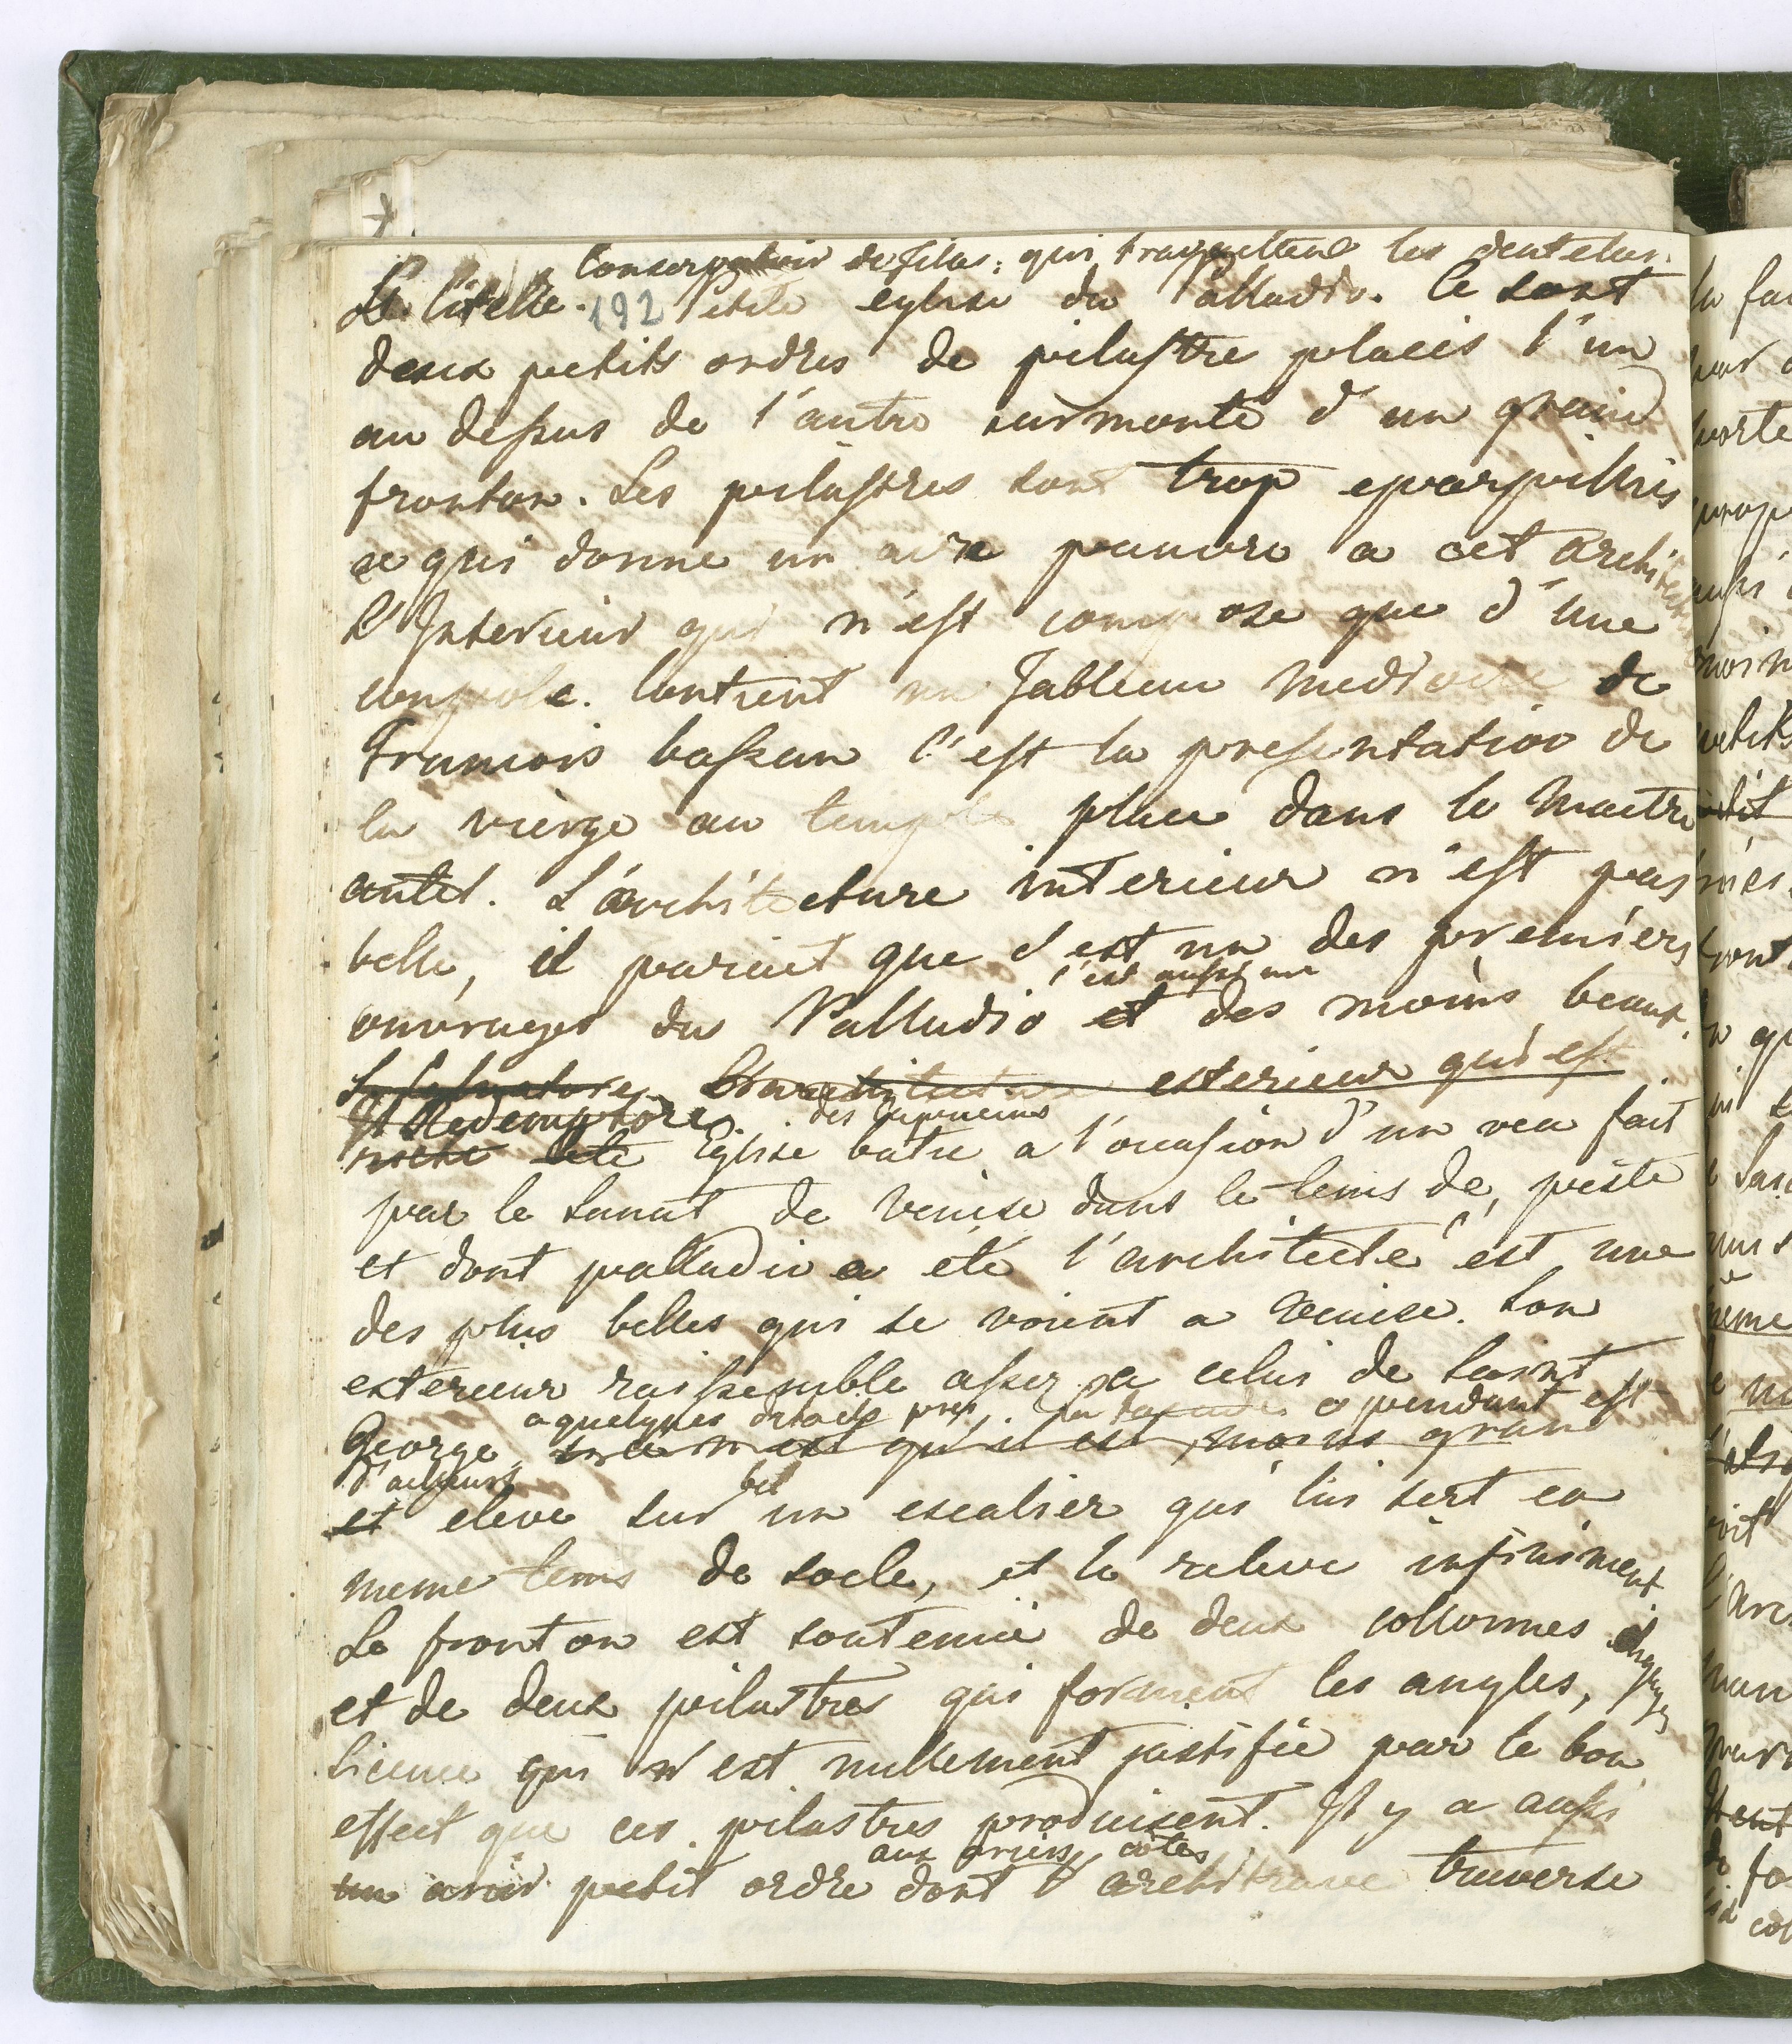 Conservatoir de filles: qui travaillent les dentelles.
Le Citelle. 192 Petite eglise du Palladio. Ce sont
deux petits ordres de pilastre placés l'un
au dessus de l'autre surmonté d'un grand
fronton. Les pilastres sont trop eparpillies
ce qui donne un aire pauvre a cet Architecture
L'Interieur qui n'est compose que d'une
coupole. Contient un Tableau mediocre de
Francois bassan c'est la presentation de
la vierge au temple place dans le maitre
autel. L'architecture interieur n'est pas
belle, il parait que c'est un des premiers
c'est aussi un
ouvrages du Palladio et des moins beaux.
exterieur qui est
Il Redemptore. des Capucins
Eglise batie a l'occasion d'un veu fait
par le senat de Venise dans le tems de peste
et dont palladio a été l'architecte c'est une
des plus belles qui se voient a Venise. Son
exterieur raissemble assez a celui de Saint
a quelques details pres, la facade cependant est
George, qu'il est moins grand
d'ailleurs bel
et eleve sur un escalier qui lui sert en
meme tems de socle, et la releve infiniment
Le fronton est soutenüe de deux collonnes
et de deux pilastres qui forment les angles,
licence qui n'est nullement justifiée par le bon
effect que ces pilastres produisent. Il y a aussi
aux cotés
un petit ordre dont l'architrave traverse
la fa